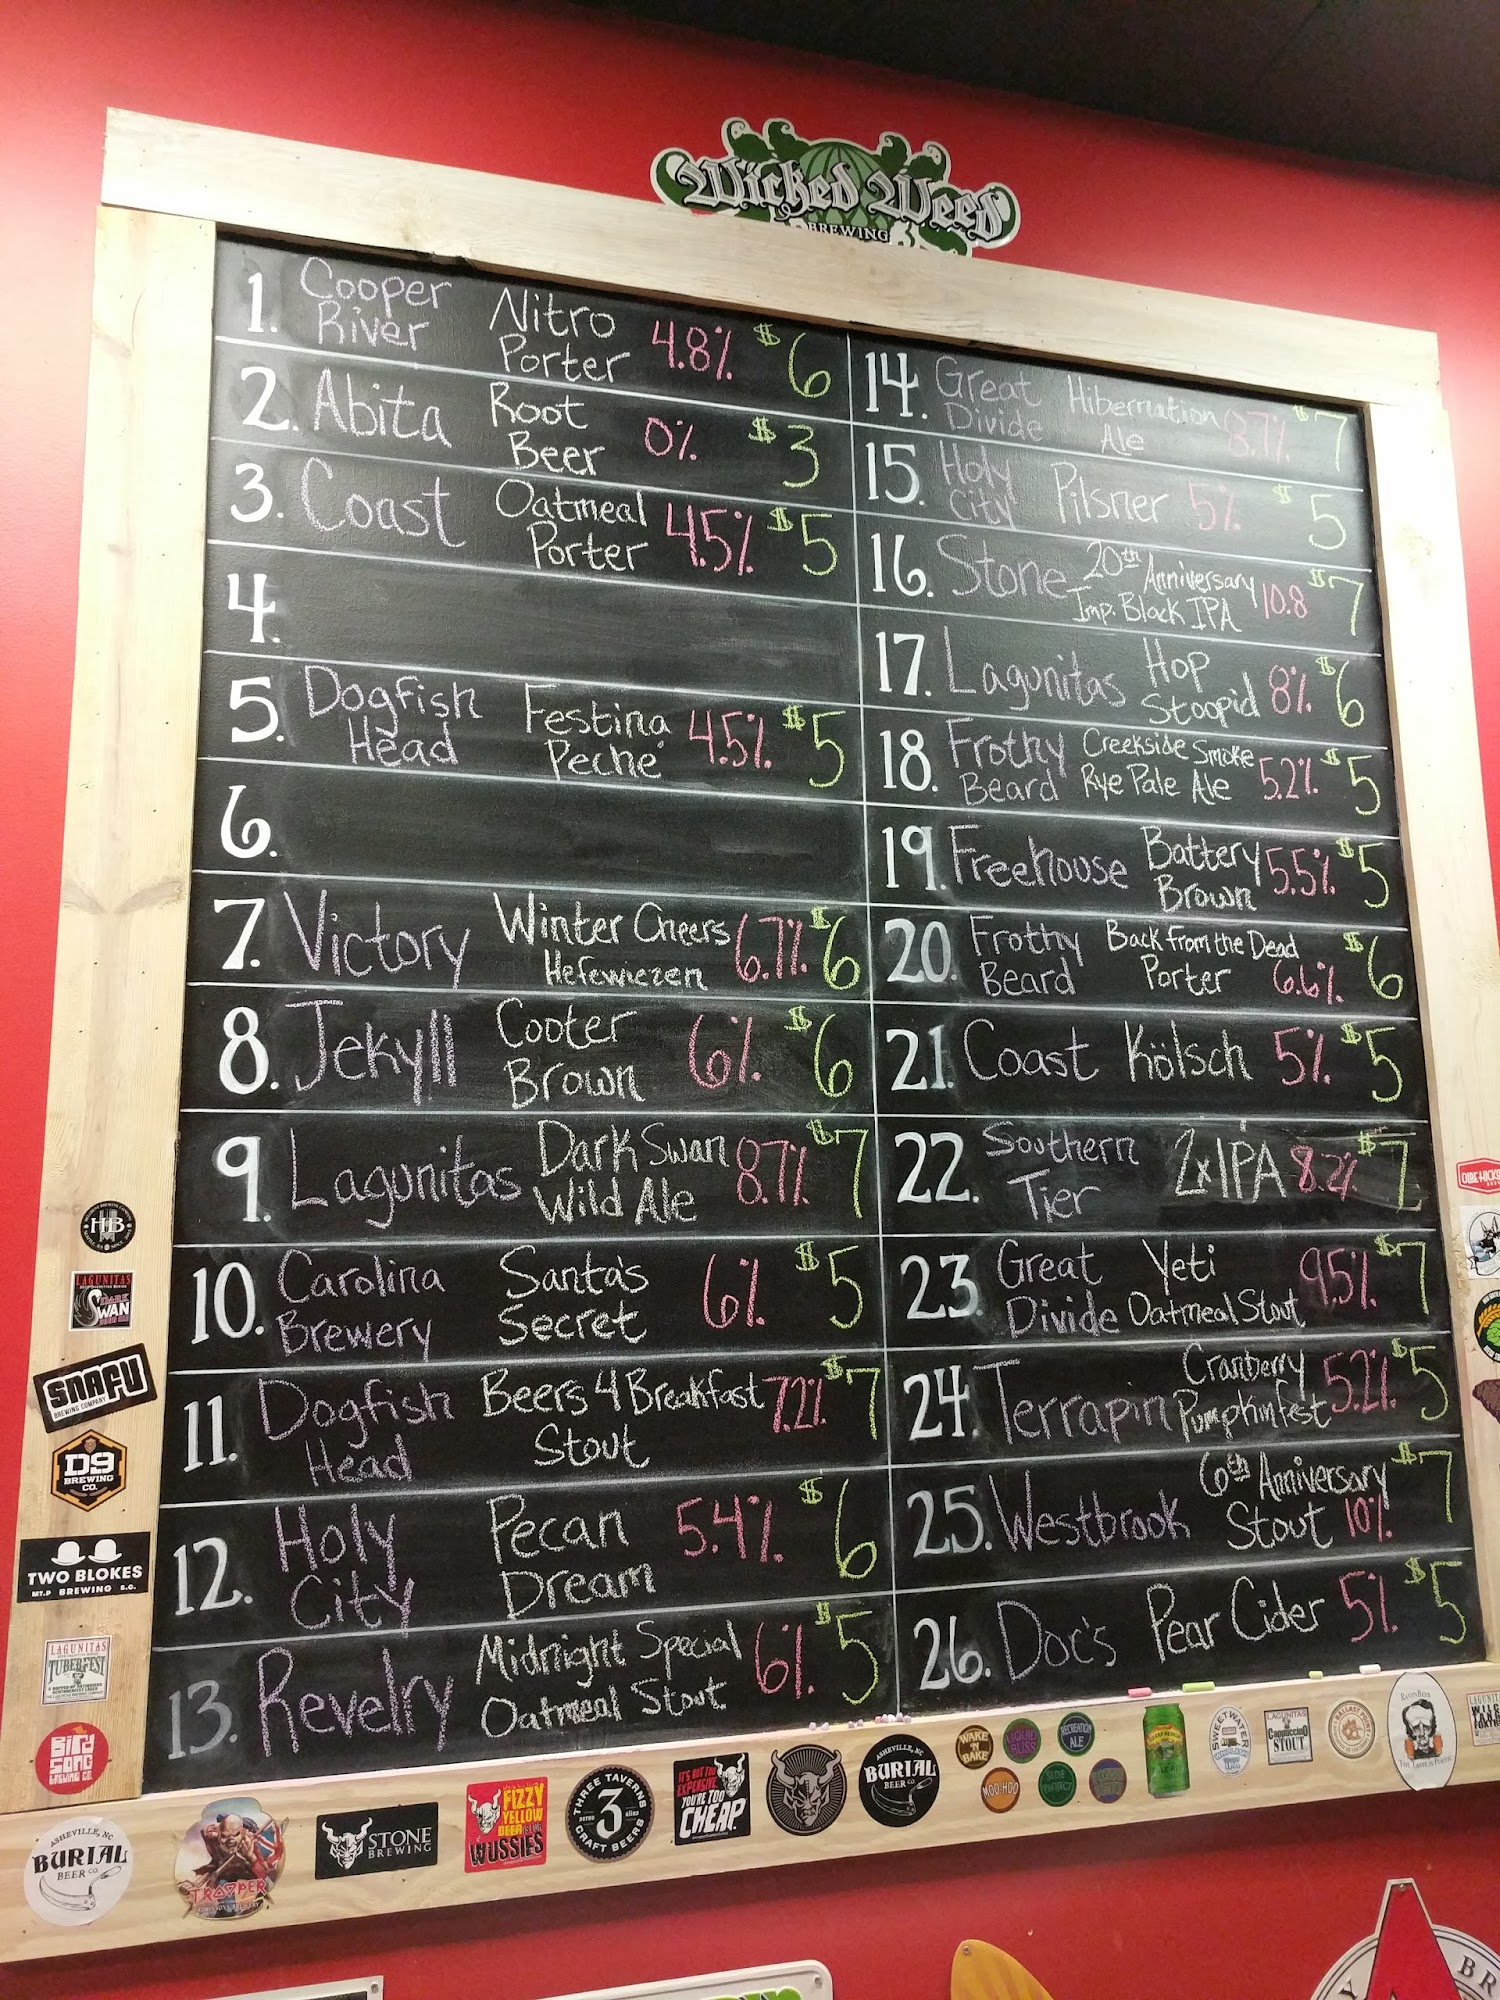 Wicked Weed
BREWING
1. Cooper River Nitro Porter 4.8% $6
2. Abita Root Beer 0% $3
3. Coast Oatmeal Porter 4.5% $5
4.
5. Dogfish Head Festina Peché 4.5% $5
6.
7. Victory Winter Cheers Hefewiezen 6.7% $6
8. Jekyll Cooter Brown 6% $6
9. Lagunitas Dark Swan Wild Ale 8.7% $7
10. Carolina Brewery Santa's Secret 6% $5
11. Dogfish Head Beers 4 Breakfast Stout 7.2% $7
12. Holy City Pecan Dream 5.4% $6
13. Revelry Midnight Special Oatmeal Stout 6% $5
14. Great Divide Hibernation Ale 8.7% $7
15. Holy City Pilsner 5% $5
16. Stone 20th Anniversary Imp. Black IPA 10.8 $7
17. Lagunitas Hop Stoopid 8% $6
18. Frothy Beard Creekside Smoke Rye Pale Ale 5.2% $5
19. Freehouse Battery Brown 5.5% $5
20. Frothy Beard Back from the Dead Porter 6.6% $6
21. Coast Kölsch 5% $5
22. Southern Tier 2xIPA 8.2% $7
23. Great Divide Yeti Oatmeal Stout 9.5% $7
24. Terrapin Cranberry Pumpkinfest 5.2% $5
25. Westbrook 6th Anniversary Stout 10% $7
26. Doc's Pear Cider 5% $5
HB
LAGUNITAS
DARK
SWAN
SNAFU
BREWING COMPANY
D9
BREWING
CO.
TWO BLOKES
MT.P BREWING S.C.
LAGUNITAS
TUBERFEST
BIRD
SONG
BREWING CO.
ASHEVILLE, NC
BURIAL
BEER CO.
TROOPER
STONE
BREWING
FIZZY
YELLOW
BEER IS FOR
WUSSIES
THREE TAVERNS
3
CRAFT BEERS
IT'S NOT TOO
EXPENSIVE,
YOU'RE TOO
CHEAP.
ASHEVILLE, NC
BURIAL
BEER CO.
WAKE 'N' BAKE
LIQUID BLISS
RECREATION ALE
MOO-HOO
SIDE PROJECT
SWEETWATER
LAGUNITAS
Cappuccino
STOUT
BALLAST POINT
RAVENBEER
LAGUNITAS